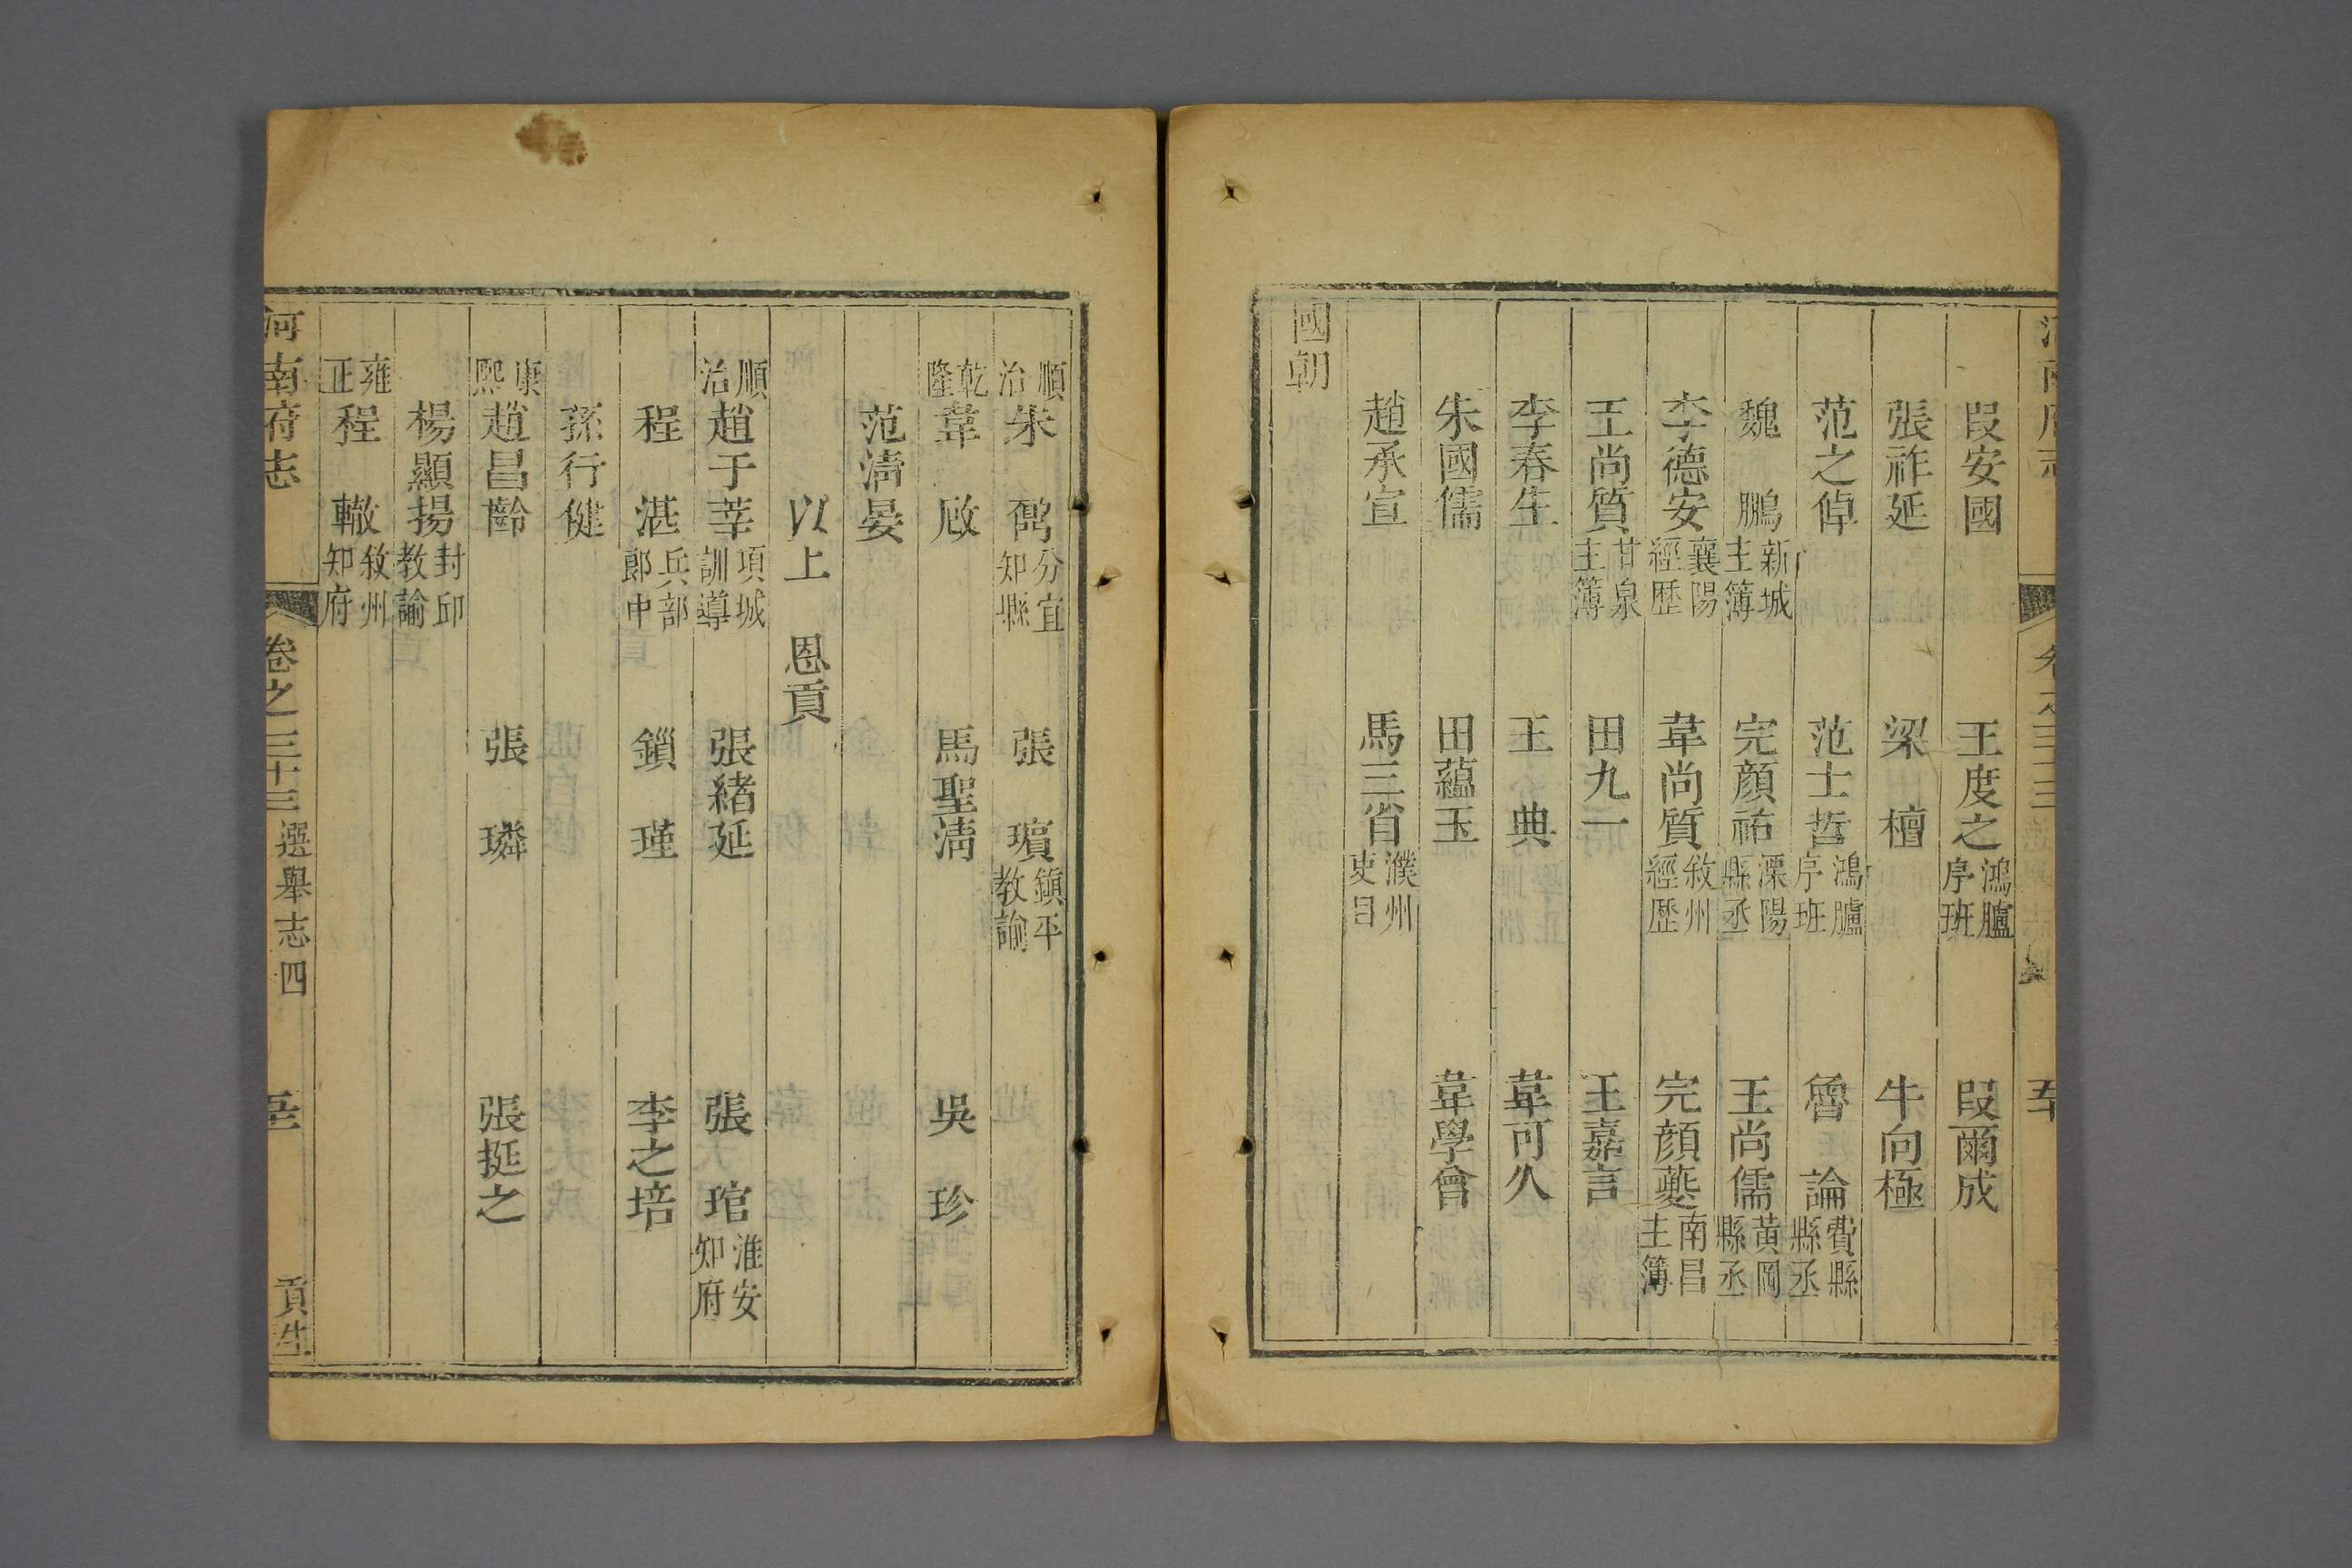 段安國 王度之鴻臚序班 段爾成
張祚延 梁檀 牛向極
范之倬 范士哲鴻臚序班 魯論費縣縣丞
魏鵬新城主簿 完顏祐溧陽縣丞 王尚儒黃岡縣丞
李德安襄陽經歷 韋尚質敘州經歷 完顏夔南昌主簿
王尚質甘泉主簿 田九一 王嘉言
李春生 王典 韋可久
朱國儒 田蘊玉 韋學會
趙承宣 馬三省濮州吏目
國朝
順治朱分宜知縣 張璸鎮平教諭
乾隆韋啟 馬聖清 吳珍
范清晏
以上恩貢
順治趙于莘項城訓導 張緒延 張琯淮安知府
程湛兵部郎中 鎖瑾 李之培
孫行健
康熙趙昌齡 張璘 張挺之
楊顯揚封邱教諭
雍正程轍敘州知府
河南府志 卷之三十三選舉志四 貢生